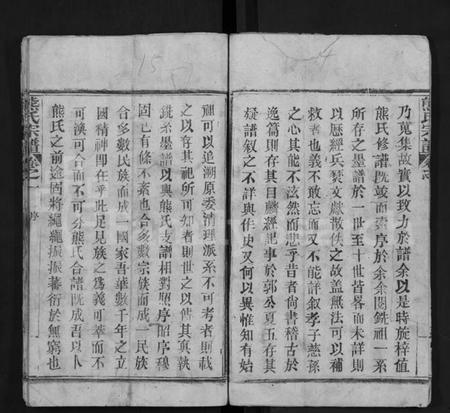 乃蒐集故實以致力於譜余以是時旋梓值
熊氏修譜既竣而索序於余余閱銑祖一系
所存之墨譜於一世至十世皆畧而未詳則
以歷經兵燹文獻散佚之故蓋無法可以補
救者也義不敢忘而又不能詳叙孝子慈孫
之心其能不泫然而悲乎昔者尚書稽古於
逸篇則存其目麟經記事於郭公夏五存其
疑譜叙之不詳與作史又何以異惟知有始
祖可以追溯原委清理派系不可考者則載
之以存其祀所可知者則世次其真以執
銑系墨譜以與熊氏支譜相對照序昭序穆
固已有條不紊也合多數宗族而成一民族
合多數民族而成一國家吾華數千年之立
國精神即在乎此足見族之為義可萃而不
可渙可合而不可分熊氏合譜既成吾以卜
熊氏之前途固將繩繩振振蕃衍於無窮也
熊氏宗譜
卷之一
序
熊氏宗譜
15